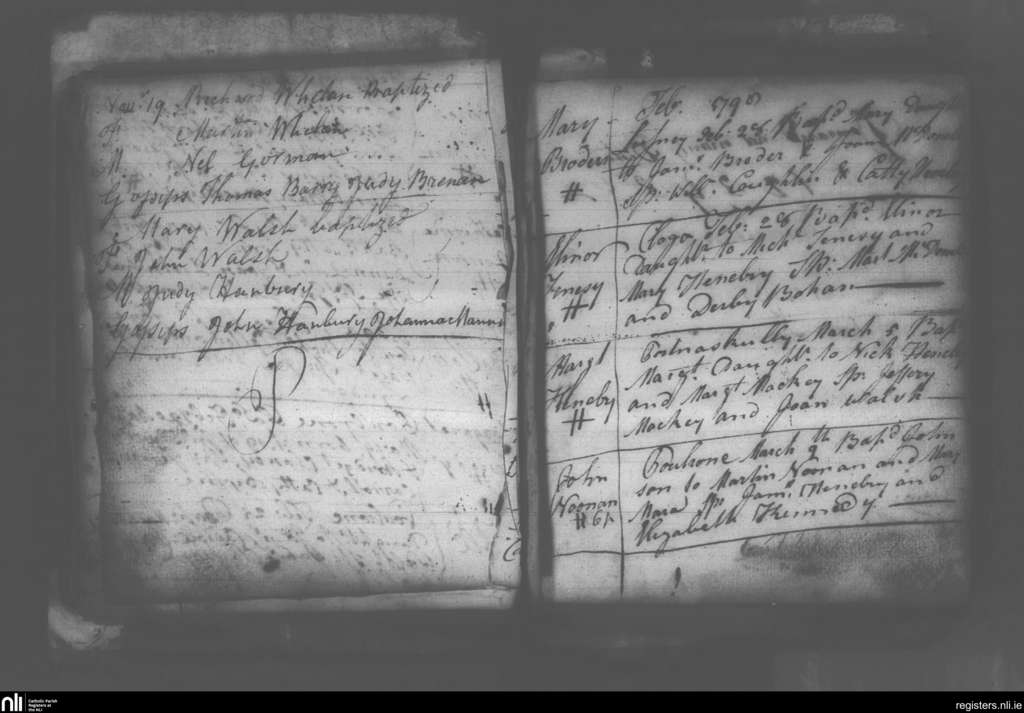 Nov. 19 Richard Whelan Baptized
of Martin Whelan
M Nel Gorman
Gosips Thomas Barry Judy Brenan
Mary Walsh baptized
F John Walsh
M Judy Hanbury
Gosips John Hanbury Johanna
Mary
Broderi
#
Feb. 1798
Feb. 26 Bapd. Mary Daught
to Jams. Broder & Joan
Sp. Willm. Coughlin & Catty
Elinor
Fenesy
#
Clogo Feb. 26 Bapd. Elinor
Daught. to Mich Fenesy and
Mary Henebry Sp. Mart
and Derby Bohan
Margt
Henebry
#
Portnaskully March 5 Bap
Margt. Daught. to Nick Heneb
and Margt Mackey Sp. Jeffery
Mackey and Joan Walsh
John
Noonan
#
March 9th Bapd John
son to Martin Noonan and Mary
Mara Sp. Jams. Henebry and
Elizabeth Kennedy
nli
Catholic Parish
Registers at
the NLI
registers.nli.ie